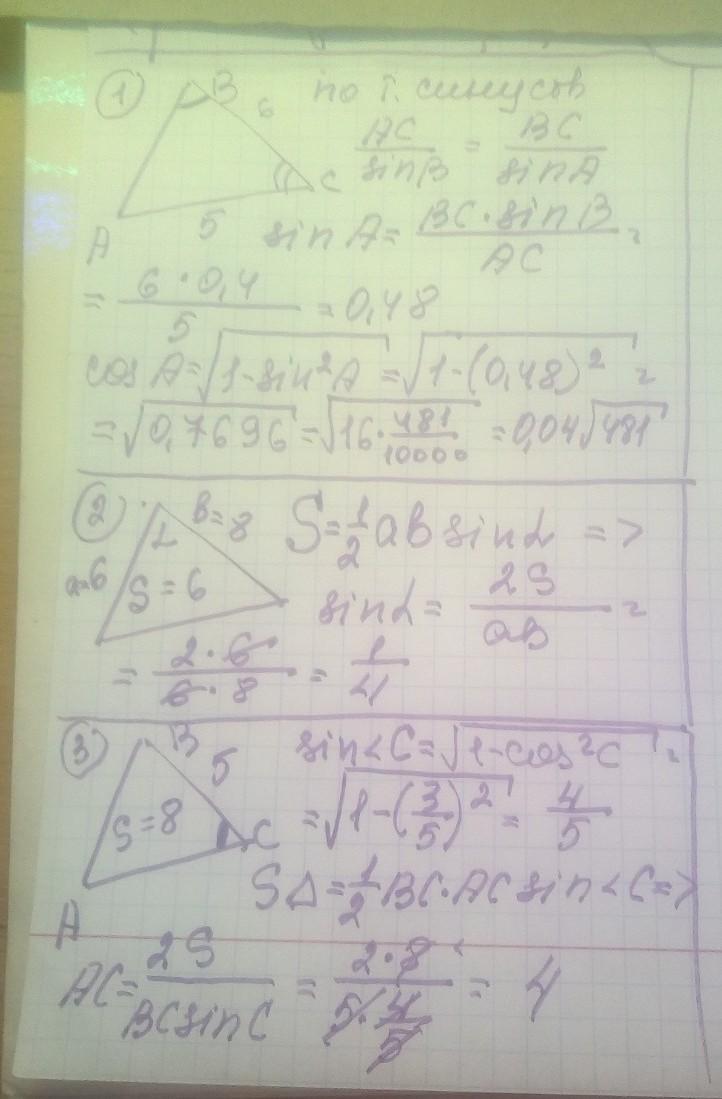 ① B 6 по т. синусов
AC/sinB = BC/sinA
C
A 5 sin A = BC·sinB/AC =
= 6·0,4/5 = 0,48
cos A = √(1-sin²A) = √(1-(0,48)²) =
= √0,7696 = √(16·481/10000) = 0,04√481
② в=8 S=1/2 aв sinα =>
α
a=6 S=6 sinα = 2S/aв =
= 2·6/6·8 = 1/4
③ B 5 sin∠C = √(1-cos²C) =
S=8 C = √(1-(3/5)²) = 4/5
S△ = 1/2 BC·AC sin∠C =>
A
AC = 2S/BCsinC = 2·8/5·4/5 = 4